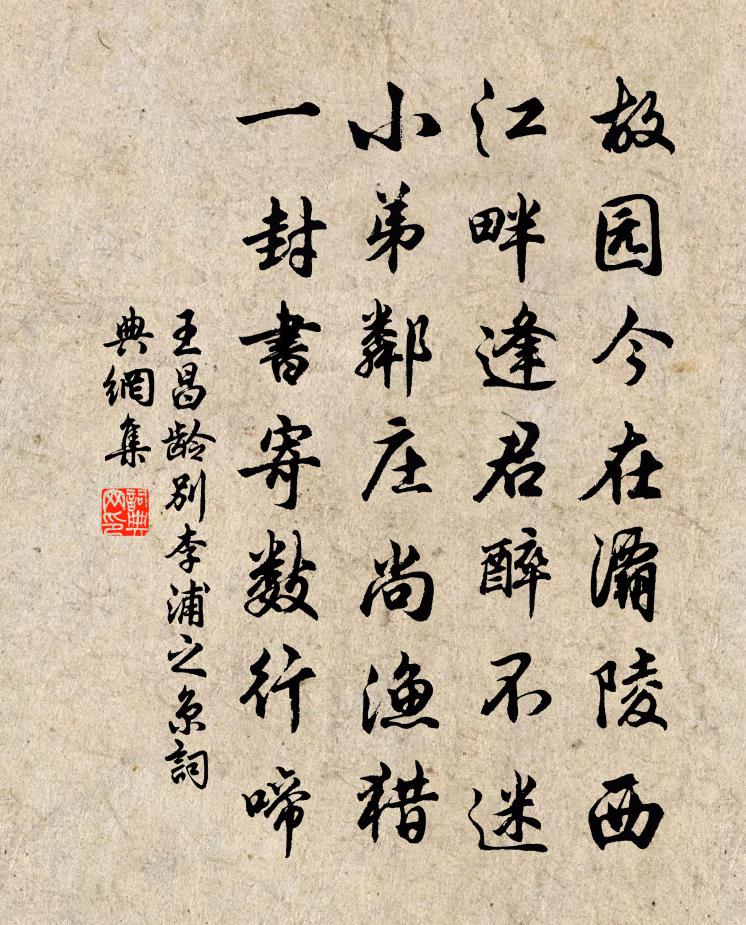 故园今在灞陵西
江畔逢君醉不迷
小弟鄰庄尚渔猎
一封書寄数行啼
王昌龄别李浦之京詞
典網集
詞典
网印